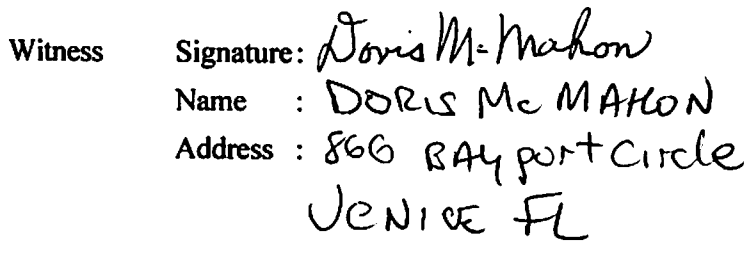 Witness Signature: Doris McMahon
Name : DORIS Mc MAHON
Address : 866 BAYport Circle
VENICE FL